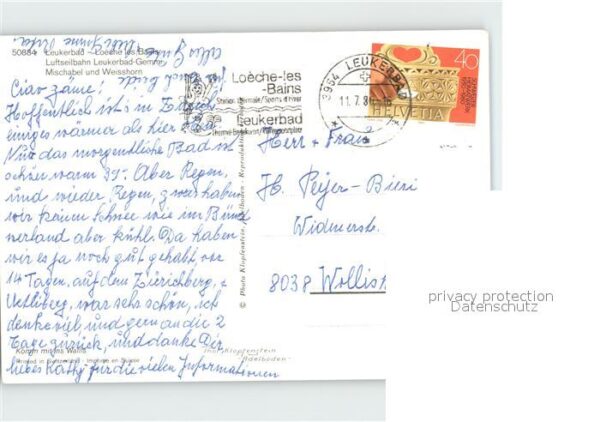 50884 Leukerbad - Loèche les Bains
Luftseilbahn Leukerbad-Gemmi
Mischabel und Weisshorn
alles Gute
Ciao zäme!
Hoffentlich ist's in Zürich
einiges wärmer als hier
Nur das morgentliche Bad ist
schön warm 37°. Aber Regen,
und wieder Regen, zwar haben
wir kaum Schnee wie im Bünd
nerland aber kühl. Da haben
wir es ja noch gut gehabt vor
14 Tagen, auf dem Zürichberg, +
Uetliberg, war sehr schön, ich
denke viel, und gern an die 2
Tage zurück, und danke Dir
liebes Käthy für die vielen Informationen
Komm mit ins Wallis
Printed in Switzerland - Imprimé en Suisse
© Photo Klopfenstein, Adelboden - Reproduktion
Loèche-les
-Bains
Station thermale/Sports d'hiver
Leukerbad
3954 LEUKERBAD
11.7.80
40
HELVETIA
Herr + Frau
H. Peijer-Bieri
Widmerstr.
8038 Wollis
Klopfenstein
Adelboden
privacy protection
Datenschutz